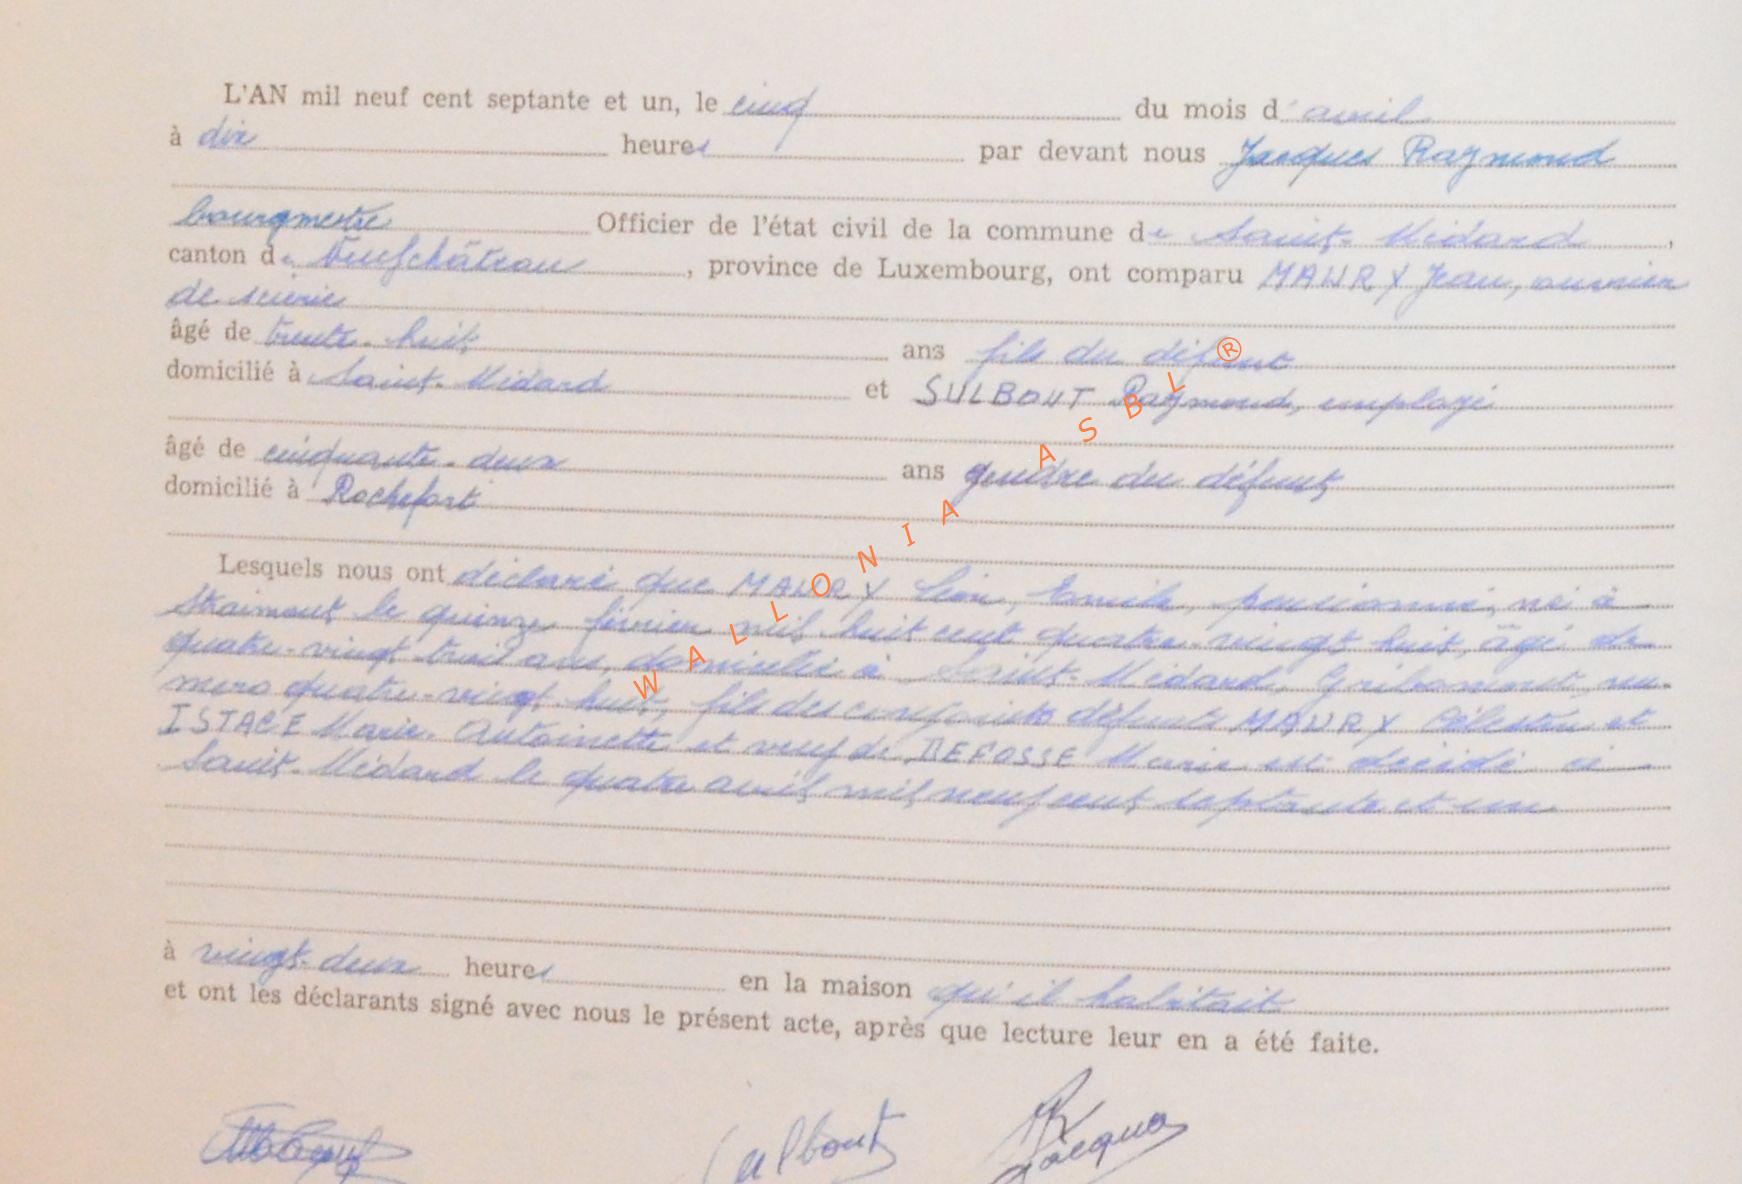 L'AN mil neuf cent septante et un, le cinq du mois d'avril
à dix heures par devant nous Jacques Raymond
bourgmestre Officier de l'état civil de la commune de Saint-Médard,
canton de Neufchâteau, province de Luxembourg, ont comparu MAURY Jean, ouvrier
de scierie
âgé de trente-huit ans fils du défunt
domicilié à Saint-Médard et SULBOUT Raymond, employé
âgé de cinquante-deux ans gendre du défunt
domicilié à Rochefort
Lesquels nous ont déclaré que MAURY Léon, Emile, pensionné, né à
Straimont le quinze février mil huit cent quatre-vingt huit, âgé de
quatre-vingt trois ans, domicilié à Saint-Médard, Gribomont, nu-
mero quatre-vingt-huit, fils des conjoints défunts MAURY Célestin et
ISTACE Marie-Antoinette et veuf de DEFOSSE Marie est décédé à
Saint-Médard le quatre avril mil neuf cent septante et un
à vingt-deux heures en la maison qu'il habitait
et ont les déclarants signé avec nous le présent acte, après que lecture leur en a été faite.
Sulbout R Jacques
WALLONIA ASBL ®